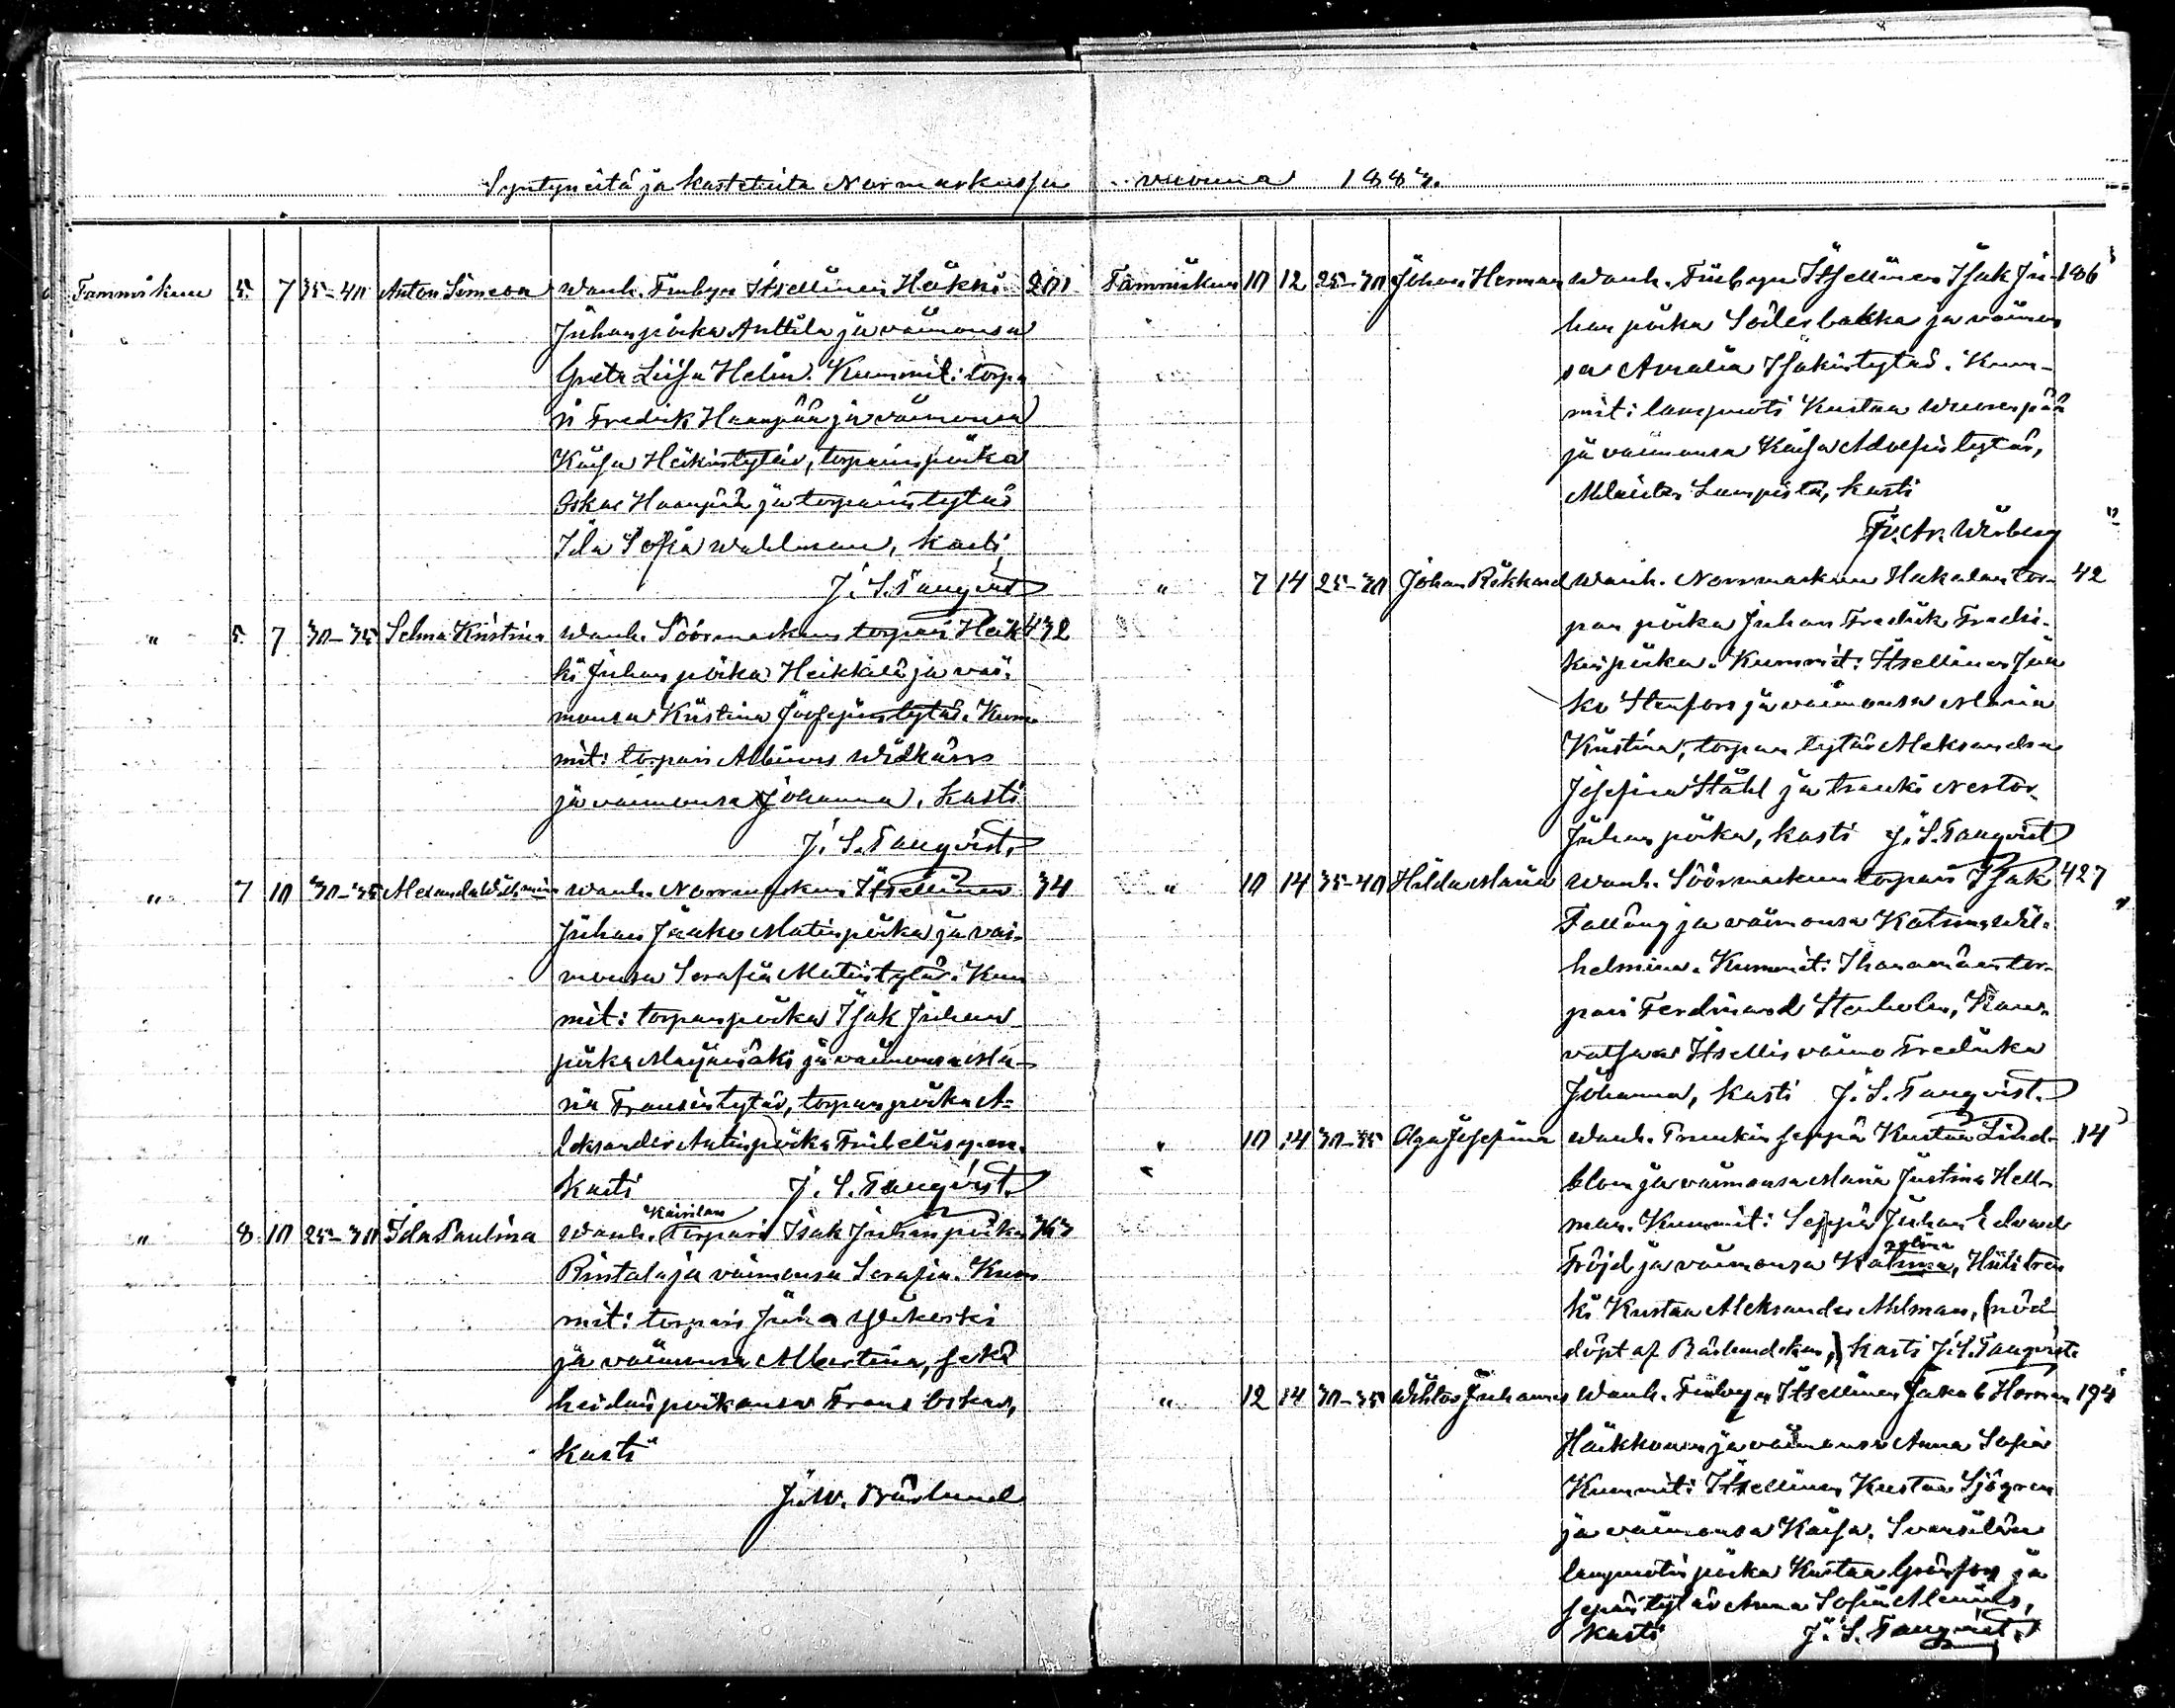 Syntyneitä ja kastetuita Normarkussa vuonna 1883.
Tammikuu 5. 7 35-40 Anton Simeon wanh. Finbyn Itsellinen Heikki 201
Juhanpoika Anttila ja vaimonsa
Greta Liisa Helin. Kummit: torpa
ri Fredrik Haanpää ja vaimonsa
Kaisa Heikintytär, torparinpoika
Oskar Haanpää ja torparintytär
Ida Sofia Wahlman, kasti
J. S. Tanqvist
" 5. 7 30-35 Selma Kristina wanh. Söörmarkun torpari Heik 432
ki Juhanpoika Heikkilä ja vai-
monsa Kristina Joosepintytär. Kum
mit: torpari Albinus Widkärr
ja vaimonsa Johanna, kasti
J. S. Tanqvist.
" 7 10 30-35 wanh. Norrmarkun Itsellinen 34
Juhan Jaako Matinpoika ja vai-
monsa Serafia Matintytär. Kum
mit: torparipoika Isak Juhan
poika ja vaimonsa Ma-
ria Fransintytär, torparipoika A-
leksander Antinpoika
kasti J. S. Tanqvist.
Kairilan
" 8 10 25-30 Ida Paulina wanh. Torpari Isak Juhanpoika 363
Rintala ja vaimonsa Serafia. Kum
mit: torpari Juha Ylikoski
ja vaimonsa Albertina, sekä
heidän poikansa Frans Oskar,
kasti
J. W. Bärlund
Tammikuu 10 12 25-30 Johan Herman wanh. Finbyn Itsellinen Isak Ju- 186
hanpoika Söderbakka ja vaimon
sa Amalia Isakintytär. Kum-
mit: lampuoti Kustaa Wuorenpää
ja vaimonsa Kaisa Adolfintytär,
kasti
Fr. Ar. Wirberg
" 7 14 25-30 Johan Rikhard wanh. Norrmarkun Hakalan tor- 42
pan poika Juhan Fredrik Fredri-
kinpoika. Kummit: Itsellinen Jaa
ko Stenfors ja vaimonsa Maria
Kristina, torpan tytär Aleksandra
Josefina Ståhl ja trenki Nestor
Juhanpoika, kasti J. S. Tanqvist
" 10 14 35-40 Hilda Maria wanh. Söörmarkun torpari Isak 427
Falläng ja vaimonsa Katrina Wil-
helmina. Kummit: tor-
pari Ferdinand Stenholm, Kan-
vatsan Itsellis vaimo Fredrika
Johanna, kasti J. S. Tanqvist.
" 10 14 30-35 Olga Josefina wanh. Truukin seppä Kustaa Lind- 14
blom ja vaimonsa Maria Justina Hell-
man. Kummit: Seppä Juhan Edvard
Fröjd ja vaimonsa Katrina,
ki Kustaa Aleksander Ahlman, (nöd
döpt af Bärlundskan,) kasti J. S. Tanqvist.
" 12 14 30-35 Wihtor Juhannes wanh. Finbyn Itsellinen Jakob Herman 194
Häkkänen ja vaimonsa Anna Sofia
Kummit: Itsellinen Kustaa Sjögren
ja vaimonsa Kaisa.
lampuotin poika Kustaa Grönfors ja
sepäntytär Anna Sofia
kasti J. S. Tanqvist.